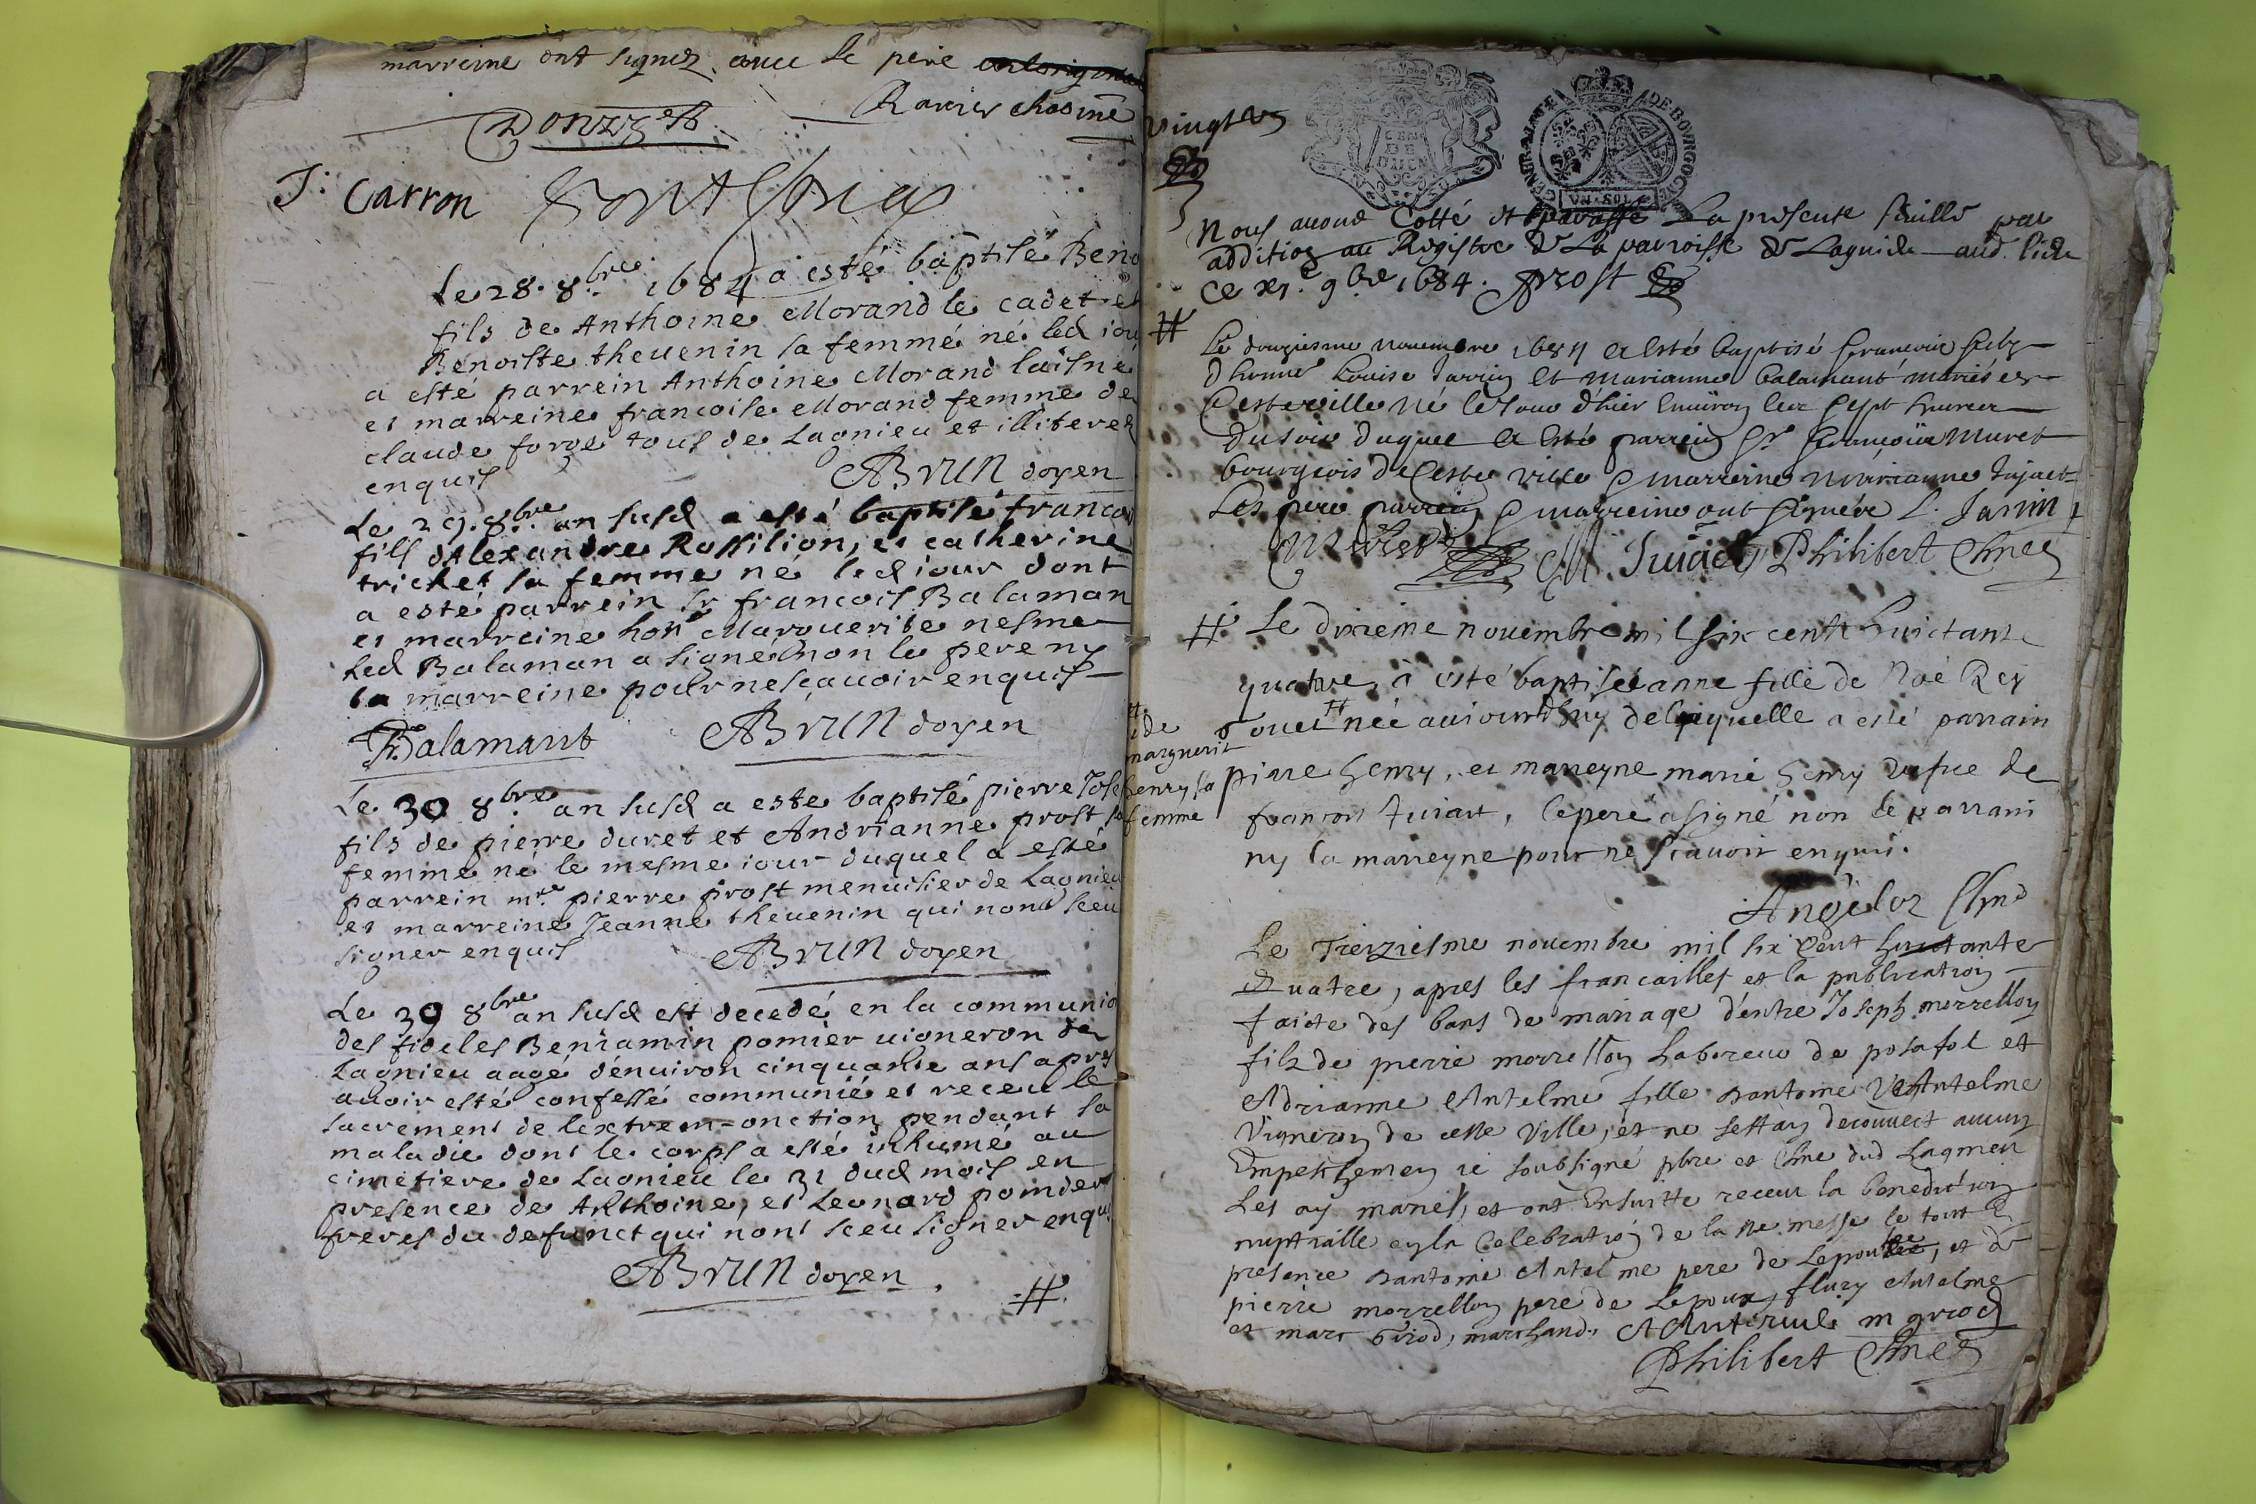 marreine ont signez avec le pere
Ravier chasnē
Donzet
J: Carron
Le 28. 8bre 1684 a esté baptisé Beno
fils de Anthoine Morand le cadet et
Benoiste thevenin sa femme né led iour
a esté parrein Anthoine Morand laisné
et marreine francoise Morand femme de
claude forge tous de Lagnieu et illiterez
enquis ABrun doyen
Le 29. 8bre an susd a esté baptisé francois
fils dAlexandre Rossilion, et catherine
trichet sa femme né led iour dont
a esté parrein sr francois Balaman
et marreine hon Marguerite nesme
Led Balaman a signé non le pere ny
la marreine pour nescavoir enquis
Balamant ABrun doyen
Le 30 8bre an susd a esté baptisé pierre Jose
fils de pierre duret et Andrianne prost sa
femme né le mesme iour duquel a esté
parrein mre pierre prost menuisier de Lagnieu
et marreine Jeanne thevenin qui nont sceu
signer enquis ABrun doyen
Le 30 8bre an susd est decedé en la communio
des fideles Beniamin pomier vigneron de
Lagnieu aagé denviron cinquante ans apres
avoir esté confessé communié et receu le
sacrement de lextrem=onction pendant sa
maladie dont le corps a esté inhumé au
cimetiere de Lagnieu le 31 dud mois en
presence de Anthoine, et Leonard pomier
freres du defunct qui nont sceu signer enquis
ABrun doyen
#
vingt
CEN
DE
GENERALITE DE BOURGOGNE
UN SOL
Nous avons Cotté et paraffé La presente feuille par
addition au Registre de La parroisse de Lagnieu aud. lieu
ce xj. 9bre 1684. Prost
#
Le douziesme novembre 1684 a esté baptisé François filz
dhonné Louise Janin et Marianne balamant mariés de
Cesteville Né le Jour d'hier environ les sept heures
du soir duquel a esté parrein Sr François Muret
bourgeois de Ceste ville & marreine Marianne
Les pere parrein & marreine ont signéz L. Janin
Muret M. Philibert Chnē
# Le dixieme novembre mil six cent huictante
quatre, à esté baptisée anne fille de Noé Rey
Jouet # née auiourdhuy de laquelle a esté parrain
pierre henry, et marreyne marie henry vefve de
francois, le pere a signé non le parrain
ny la marreyne pour ne scavoir enquis.
# et de
marguerit
henry sa
femme
Angelot Chnē
Le Treiziesme novembre mil six cent huictante
Quatre, apres les fiancailles et la publication
faicte des bans de mariage d'entre Joseph morrellon
filz de pierre morrellon laboreur de posafol et
Adrianne Antelme fille dantoine Antelme
Vigneron de ceste Ville, et ne sestan decouvert aucun
Empeschemen ie soubsigné pbre et Chne dud Lagnieu
Les ay mariés, et ont Ensuitte receu la benediction
nuptialle en la Celebration de la Ste messe le tout En
presence dantoine Antelme pere de Lepouse, et de
pierre morrellon pere de Lepoux, flury Antelme
et marc Griod, marchand. m griod
Philibert Chnē